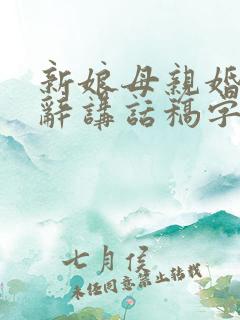 新娘母親婚
辭講話稿字
七月侯
未任同意禁止转载